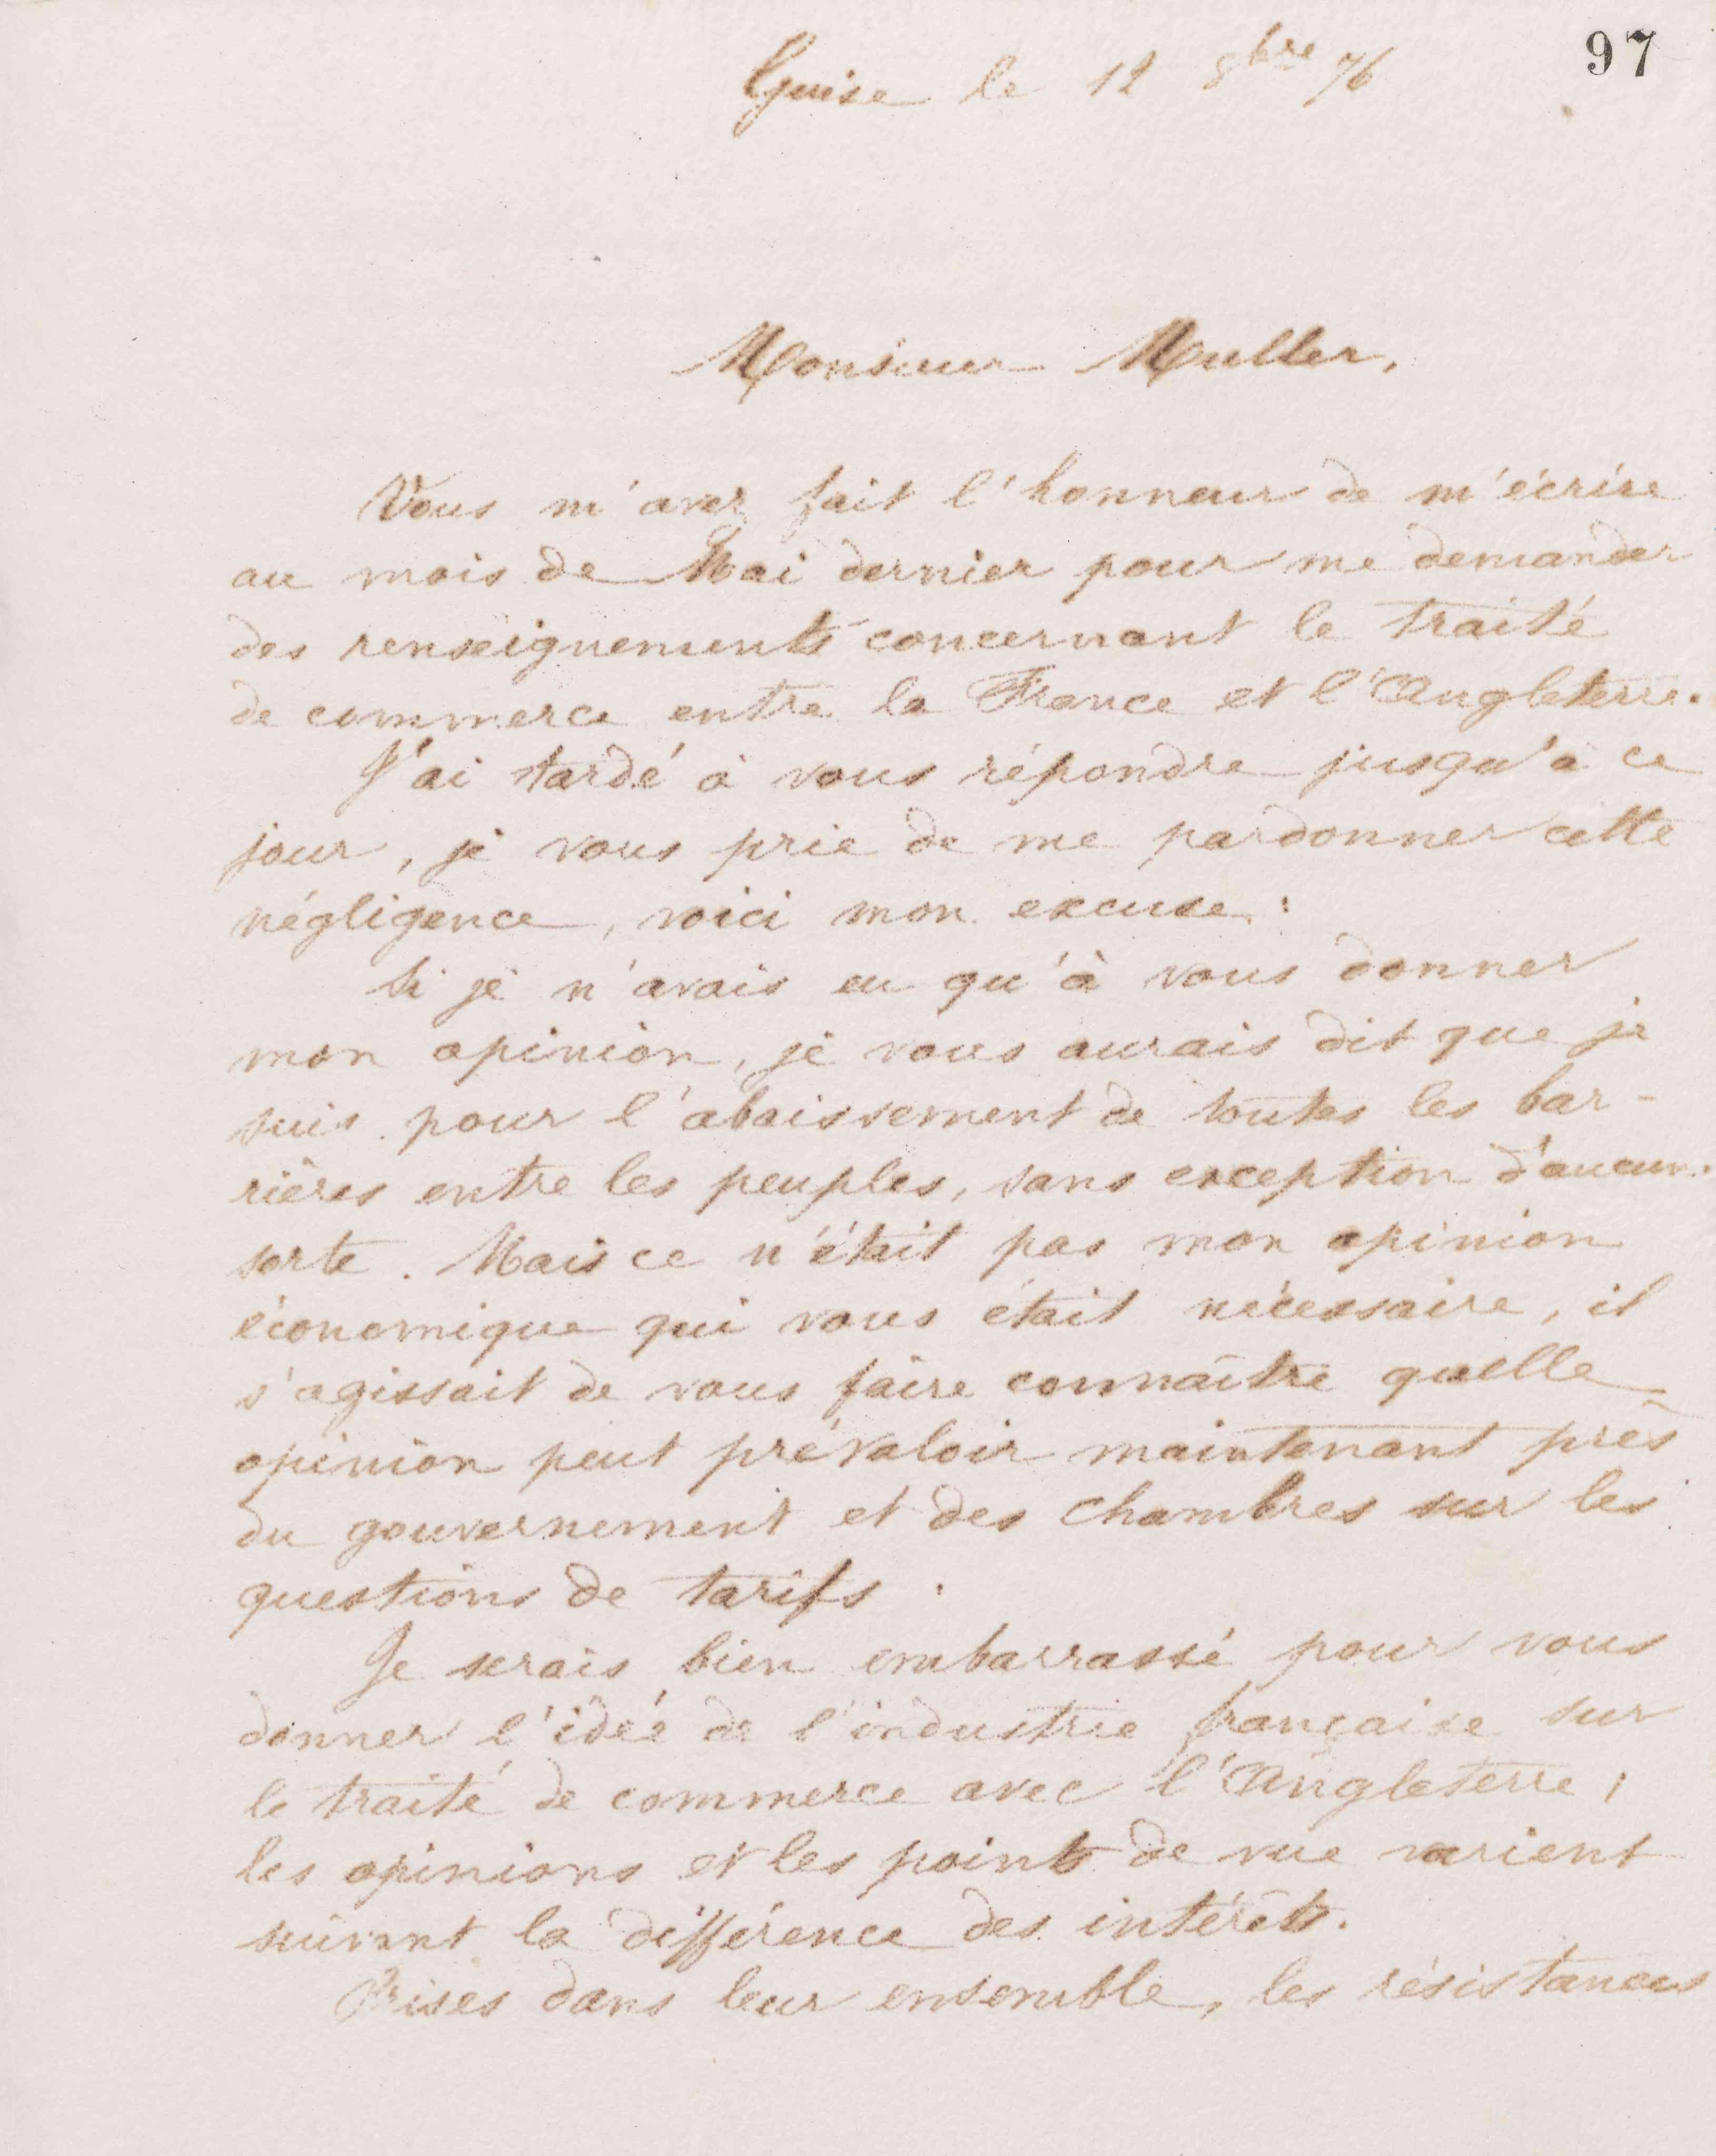 97
Guise le 12 8bre 76
Monsieur Muller,
Vous m'avez fait l'honneur de m'écrire
au mois de Mai dernier pour me demander
des renseignements concernant le traité
de commerce entre la France et l'Angleterre.
J'ai tardé à vous répondre jusqu'à ce
jour, je vous prie de me pardonner cette
négligence, voici mon excuse :
Si je n'avais eu qu'à vous donner
mon opinion, je vous aurais dit que je
suis pour l'abaissement de toutes les bar-
rières entre les peuples, sans exception d'aucune
sorte. Mais ce n'était pas mon opinion
économique qui vous était nécessaire, il
s'agissait de vous faire connaître quelle
opinion peut prévaloir maintenant près
du gouvernement et des chambres sur les
questions de tarifs.
Je serais bien embarrassé pour vous
donner l'idée de l'industrie française sur
le traité de commerce avec l'Angleterre ;
les opinions et les points de vue varient
suivant la différence des intérêts.
Prises dans leur ensemble, les résistances